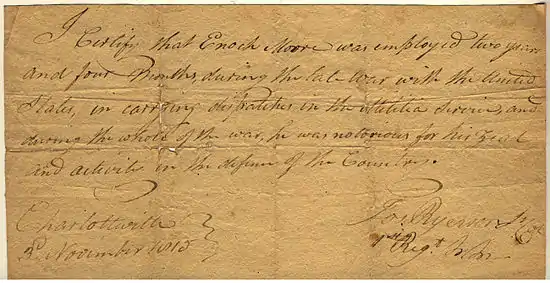 I Certify that Enoch Moore was employed two years
and four Months, during the late War with the United
States, in carrying dispatches in the Militia Service, and
during the whole of the war, he was notorious for his Zeal
and activity in the defense of the Country.
Charlotteville
November 1815
Jos. Ryerson
1st Regt